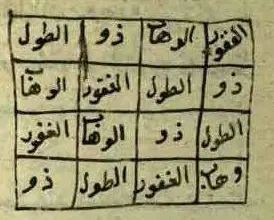 الغفور الوهاب ذو الطول
ذو الطول الغفور الوهاب
الطول ذو الوهاب الغفور
وهاب الغفور الطول ذو